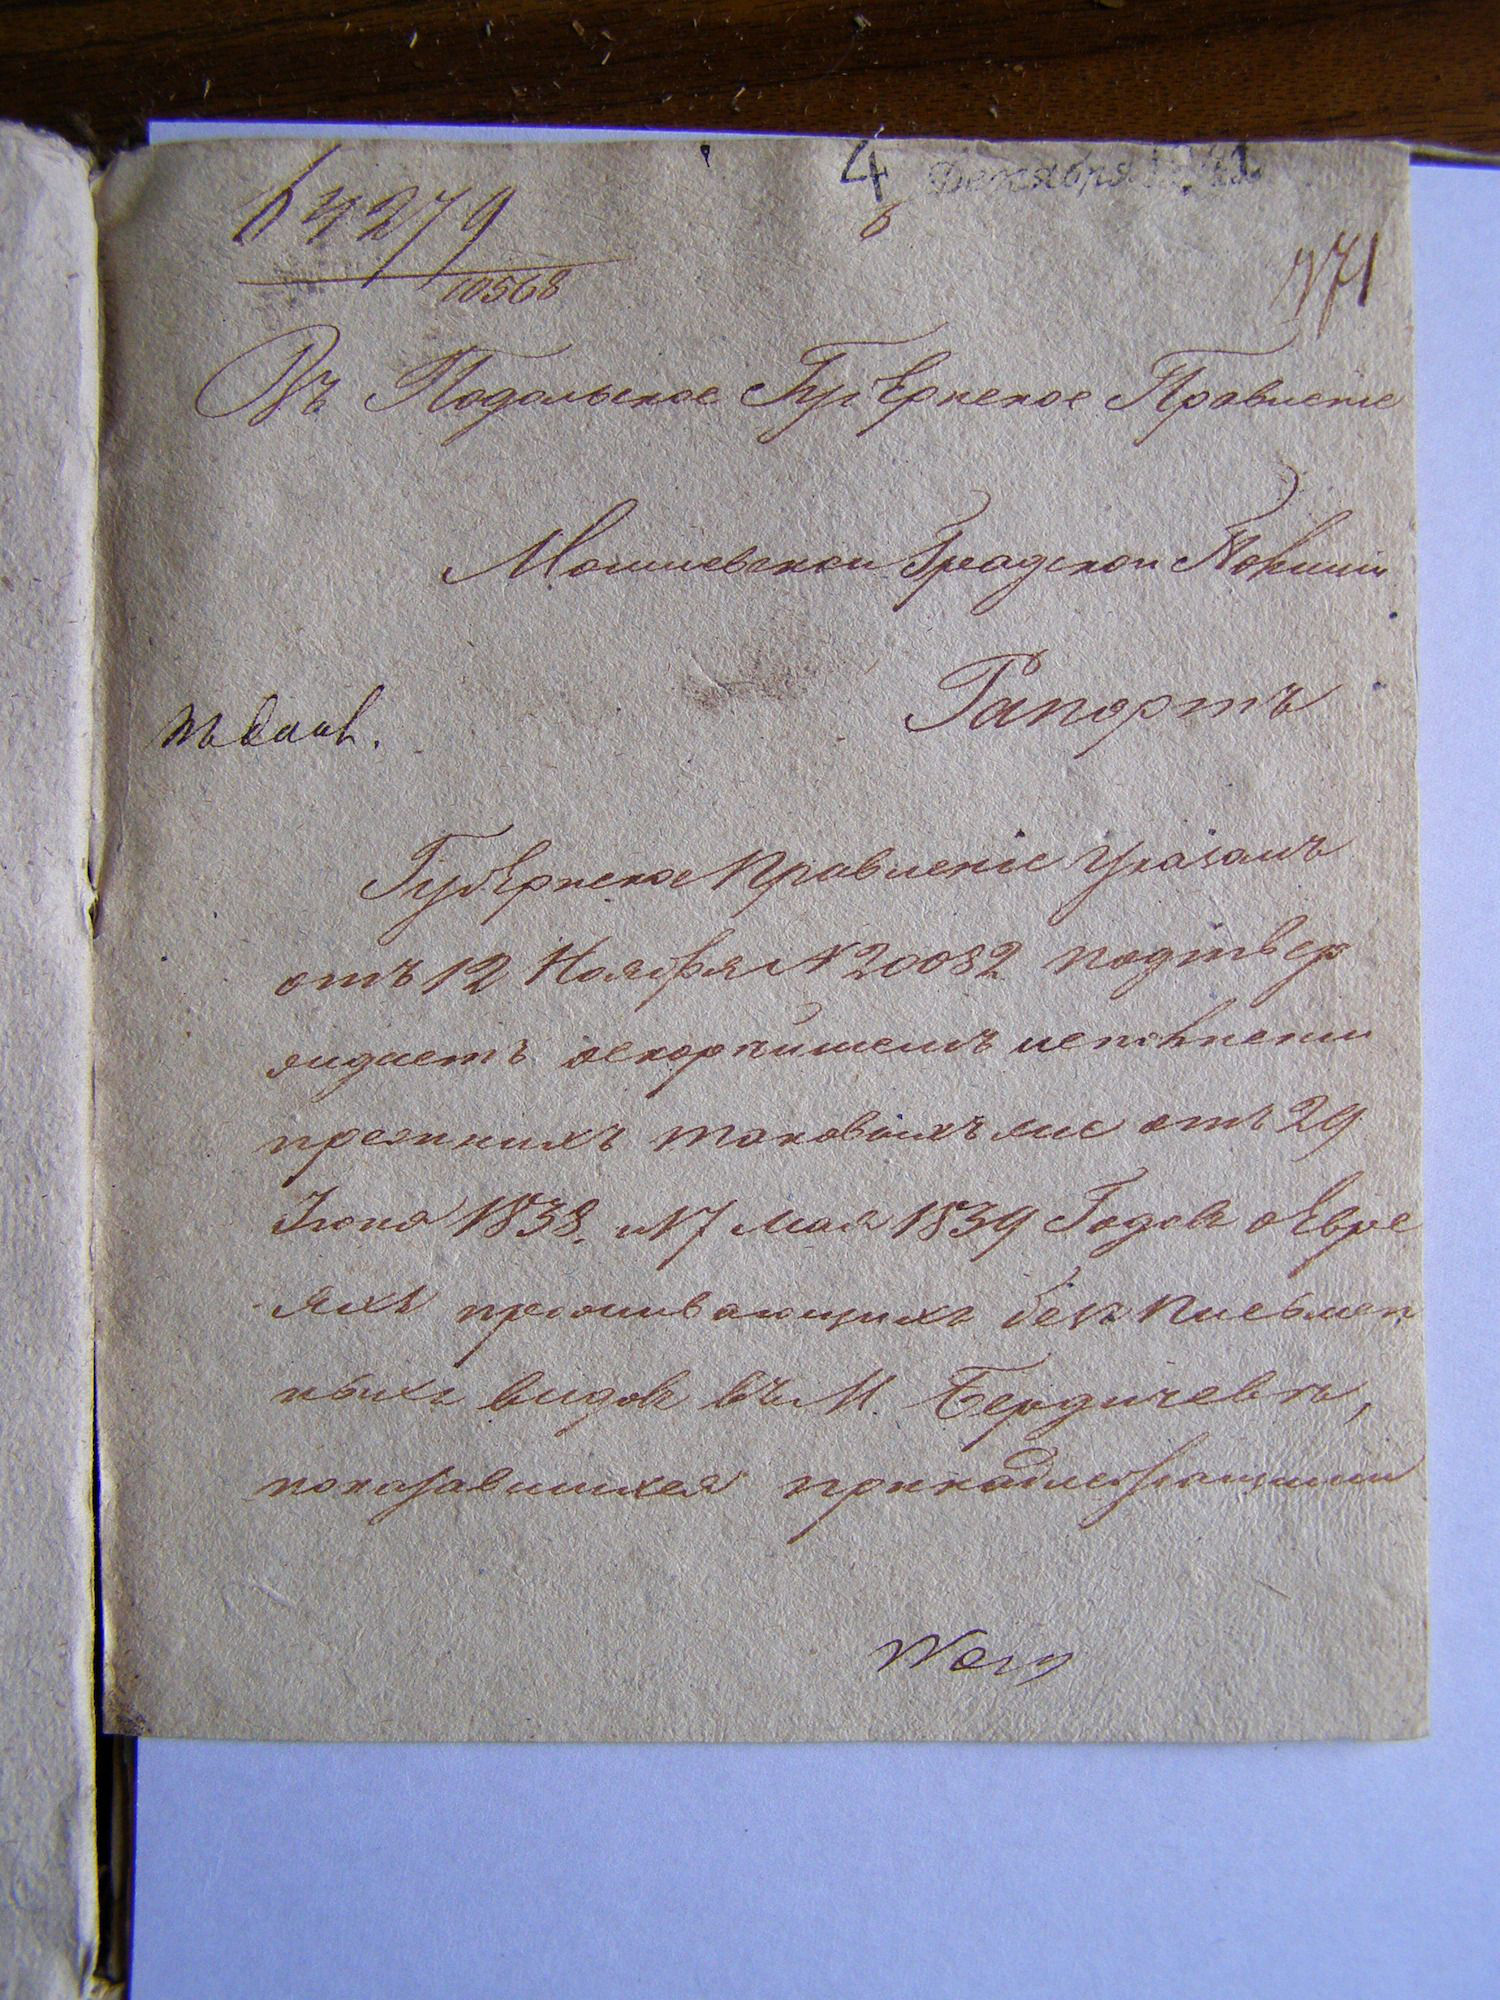 4 Декабря
64279
10568
371
Въ Подольское Губернское Правленіе
Могилевской Градской Полиціи
Рапортъ
Губернское Правленіе Указомъ
отъ 12 Ноября № 20082 подтвер
ждаетъ оскорѣйшемъ исполненіи
прежнихъ таковыхъ же отъ 29
Іюня 1838. и 17 мая 1839 Годовъ о Евре
яхъ проживающихъ безъ письмен
ныхъ видовъ въ М. Бердичевѣ,
показавшихся принадлежащими